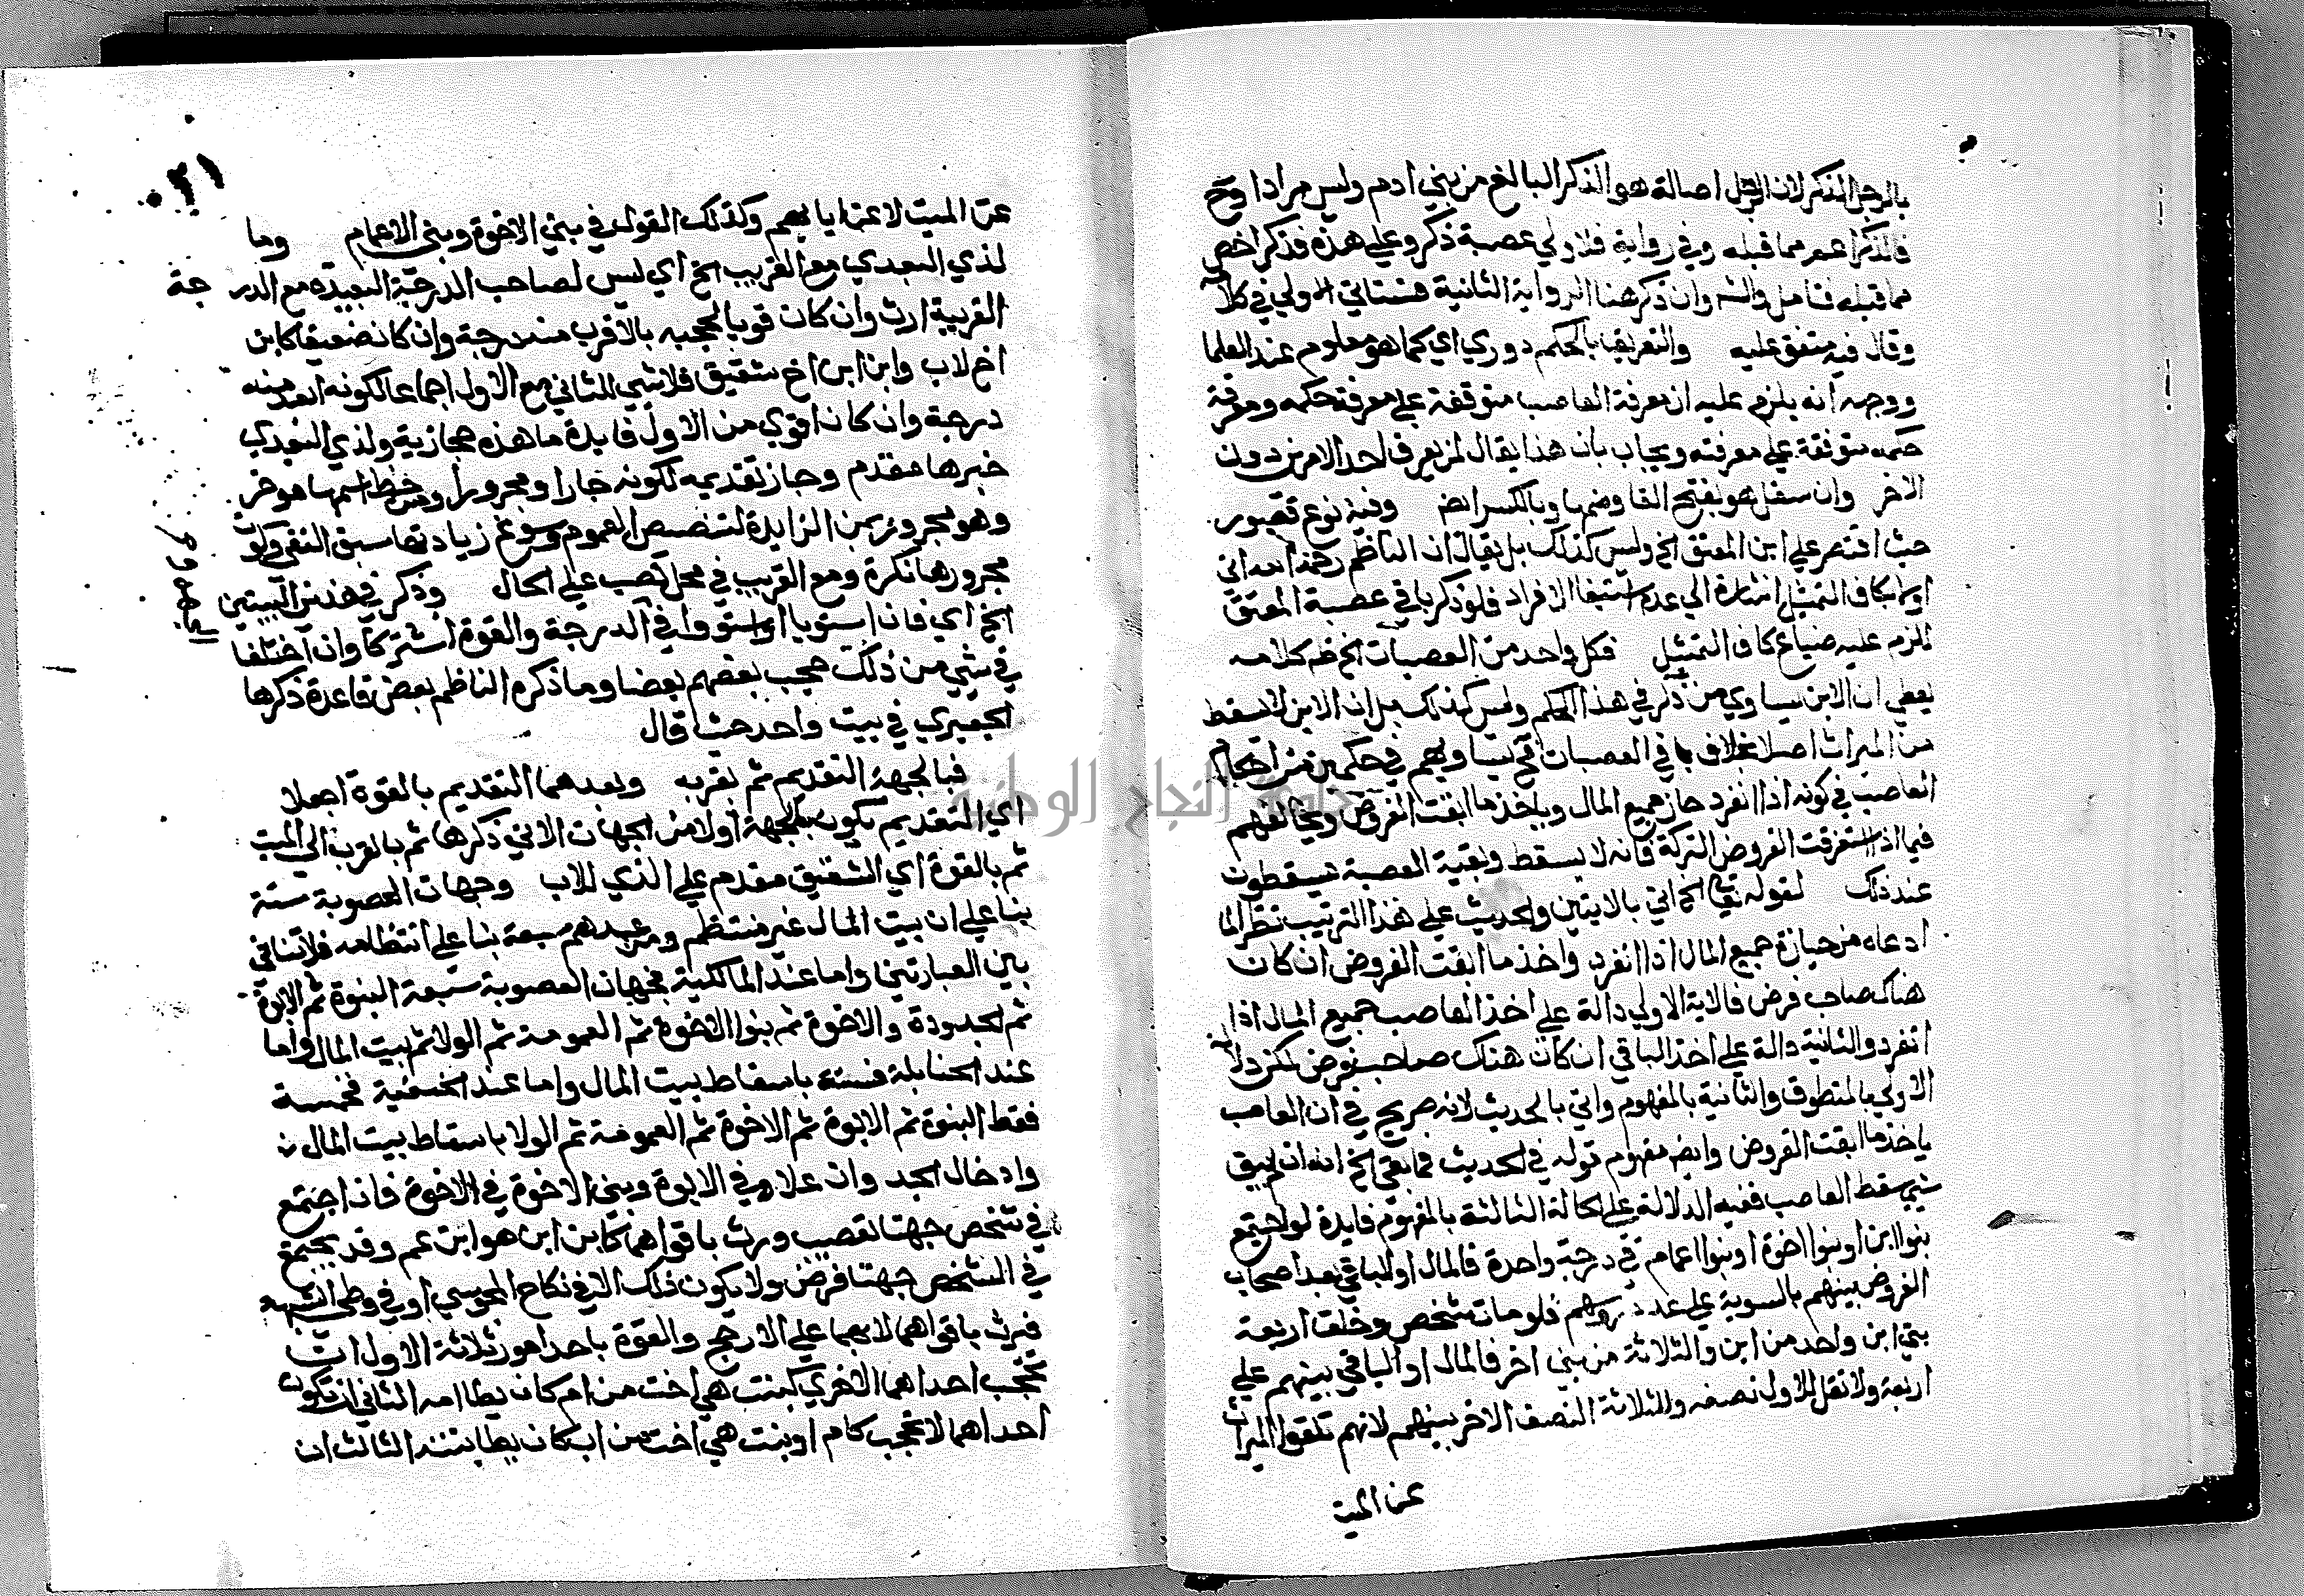 بالرجل الذكر لان الرجل اصالة هو الذكر البالغ من بني ادم وليس مرادا وح
فالذكر اعم مما قبله وفي رواية فلاولي عصبة ذكر وعلي هذه فذكر اخص
مما قبله فتامل وان ذكر هنا الرواية الثانية فستاتي الاولي في كلامه
وقال فيه متفق عليه والتعريف بالحكم دوري اي كما هو معلوم عند العلما
ووجهه انه يلزم عليه ان معرفة العاصب متوقفة علي معرفة حكمه ومعرفة
حكمه متوقفة علي معرفته ويجاب بان هذا يقال لمن يعرف احد الامرين دون
الاخر وان سفل هو بفتح الفا وضمها وبالكسر ايضا وفيه نوع قصور
حيث اقتصر علي ابن المعتق الخ وليس كذلك بل يقال ان الناظم رحمه الله اتي
اولا بكاف التمثيل اشارة الي عدم استيفا الافراد فلو ذكر باقي عصبة المعتق
للزم عليه ضياع كاف التمثيل فكل واحد من العصبات الخ ظم كلامه
يعطي ان الابن يساوي من ذكر في هذا الحكم وليس كذلك بل ان الابن لا يسقط
من الميراث اصلا بخلاف باقي العصبات نعم يساويهم في حكمين من احكام
العاصب في كونه اذا انفرد حاز جميع المال وياخذ ما ابقت الفروض ويخالفهم
فيما اذا استغرقت الفروض التركة فانه لا يسقط وبقية العصبة يسقطون
عند ذلك لقوله تعالي الخ اتي بالايتين والحديث علي هذا الترتيب نظرا لما
ادعاه من حيازة جميع المال اذا انفرد واخذ ما ابقت الفروض ان كان
هناك صاحب فرض فالاية الاولي دالة علي اخذ العاصب جميع المال اذا
انفرد والثانية دالة علي اخذ الباقي ان كان هناك صاحب فرض لكن دلالة
الاولي بالمنطوق والثانية بالمفهوم واتي بالحديث لانه صريح في ان العاصب
ياخذ ما ابقت الفروض وايضا مفهوم قوله في الحديث فما بقي الخ انه ان لم يبق
شي يسقط العاصب ففيه الدلالة علي الحالة الثالثة بالمفهوم فايدة لو اجتمع
بنوا ابن او بنوا اخوة او بنوا اعمام في درجة واحدة فالمال او الباقي بعد اصحاب
الفروض بينهم بالسوية علي عدد رؤسهم فلو مات شخص وخلف اربعة
بني ابن واحد من ابن والثلاثة من بني اخر فالمال او الباقي بينهم علي
اربعة ولا نقل للاول نصفه وللثلاثة النصف الاخر بينهم لانهم تلقوا الميراث
عن الميت
٢١
عن الميت لا عن ابايهم وكذلك القول في بني الاخوة وبني الاعمام وما
لذي البعدي مع القريب الخ اي ليس لصاحب الدرجة البعيدة مع الدرجة
القريبة ارث وان كان قويا لحجبه بالاقرب منه درجة وان كان ضعيفا كابن
اخ لاب وابن ابن اخ شقيق فلا شي للثاني مع الاول اجماعا لكونه ابعد منه
درجة وان كان اقوي من الاول فايدة ما هذه حجازية ولذي البعدي
خبرها مقدم وجاز تقديمه لكونه جارا ومجرورا ومن حظ اسمها موخر
وهو مجرور بمن الزايدة لتنصيص العموم وسوغ زيادتها سبق النفي وكون
مجرورها نكرة ومع القريب في محل نصب علي الحال وذكر في هذين البيتين
الخ اي فان استويا او استووا في الدرجة والقوة اشتركا وان اختلفا
في شي من ذلك حجب بعضهم بعضا وما ذكره الناظم بعض قاعدة ذكرها
الجعبري في بيت واحد حيث قال
فبالجهة التقديم ثم بقربه وبعدهما التقديم بالقوة اجعلا
اي التقديم يكون بالجهة اولا من الجهات الاتي ذكرها ثم بالقرب الي الميت
ثم بالقوة اي الشقيق مقدم علي الذي للاب وجهات العصوبة ستة
بنا علي ان بيت المال غير منتظم ومن عدهم سبعة بنا علي انتظامه فلا تنافي
بين العبارتين واما عند المالكية فجهات العصوبة سبعة البنوة ثم الابوة
ثم الجدودة والاخوة ثم بنوا الاخوة ثم العمومة ثم الولا ثم بيت المال واما
عند الحنابلة فستة باسقاط بيت المال واما عند الحنفية فخمسة
فقط البنوة ثم الابوة ثم الاخوة ثم العمومة ثم الولا باسقاط بيت المال
وادخال الجد وان علا في الابوة وبني الاخوة في الاخوة فاذا اجتمع
في شخص جهتا تعصيب ورث باقواهما كابن ابن هو ابن عم وقد يجتمع
في الشخص جهتا فرض ولا يكون ذلك الا في نكاح المجوسي او في وطي الشبهة
فيرث باقواهما لا بهما علي الارجح والقوة باحد امور ثلاثة الاول ان
تحجب احداهما الاخري كبنت هي اخت من ام كان يطا امه الثاني ان تكون
احداهما لا تحجب كام او بنت هي اخت من اب كان يطا بنته الثالث ان
جامعة النجاح الوطنية